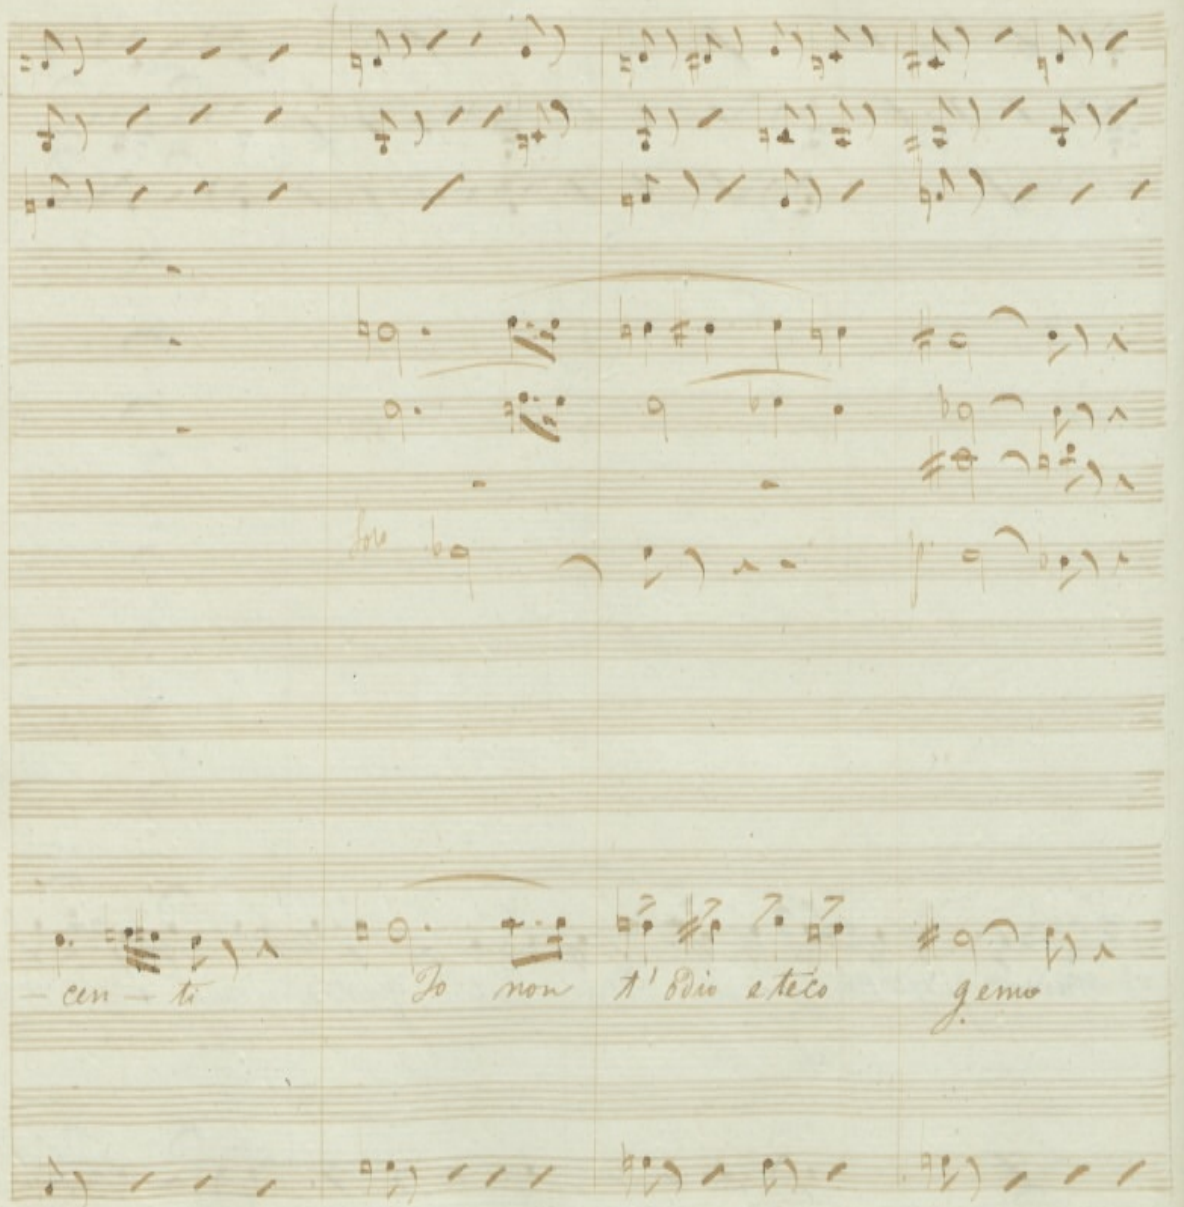 Solo
- cen - ti Io non t'odio e teco gemo